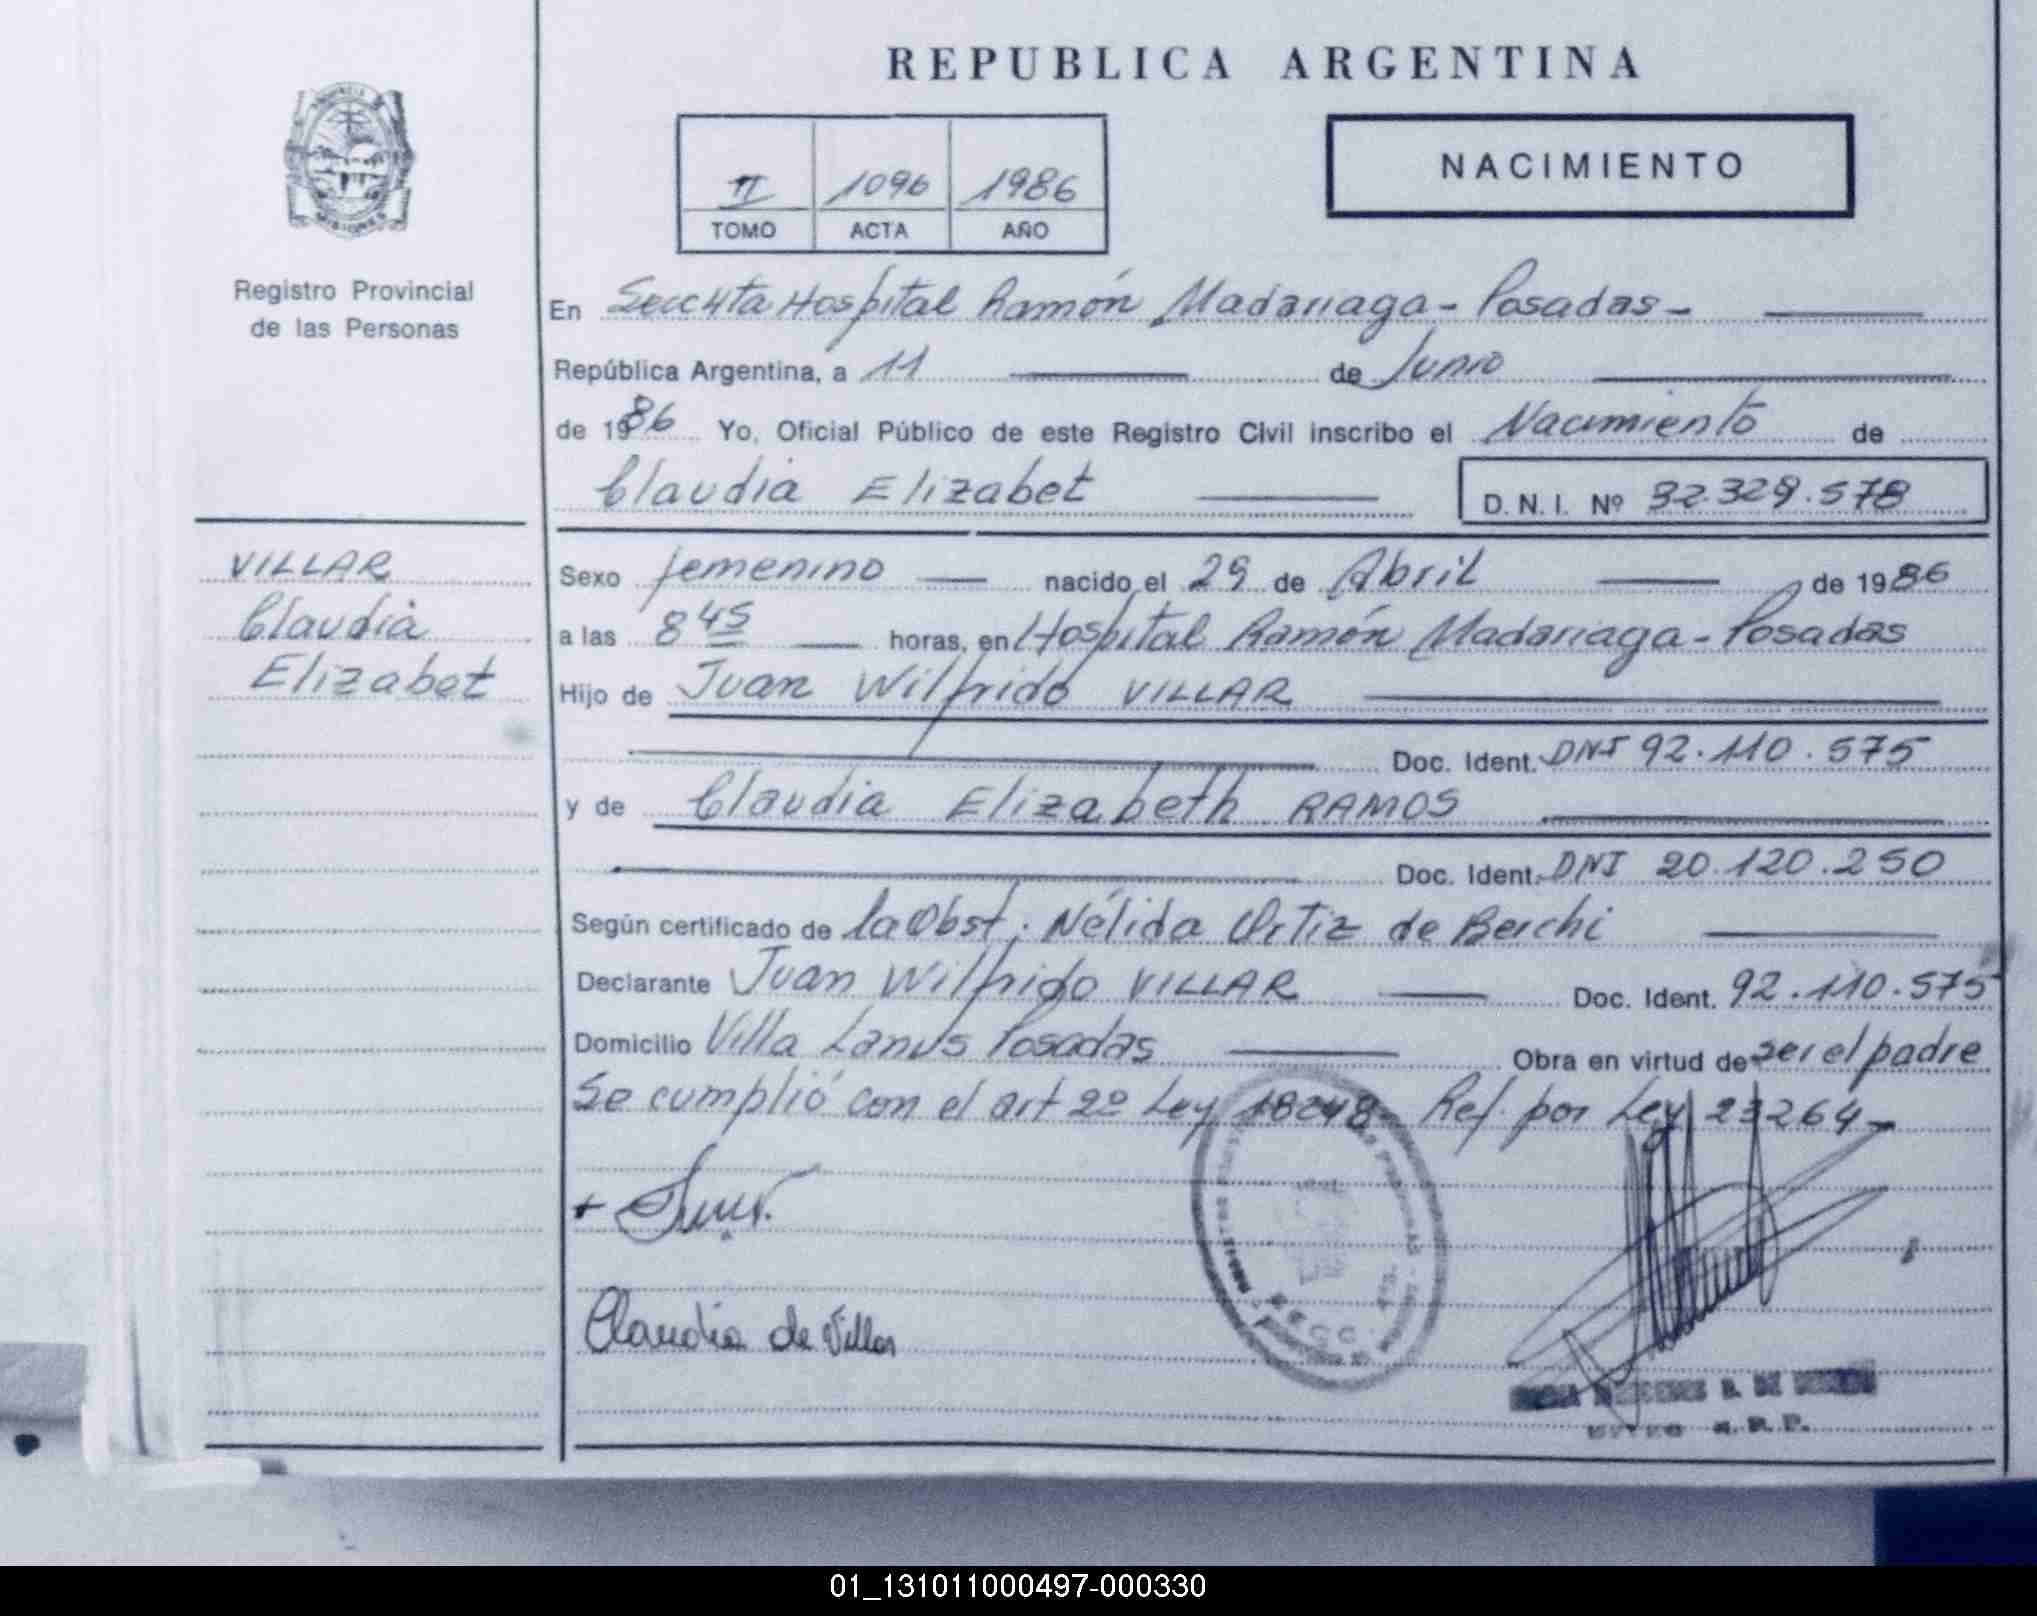 REPUBLICA ARGENTINA
II 1096 1986
TOMO ACTA AÑO
NACIMIENTO
PROVINCIA DE
MISIONES
Registro Provincial
de las Personas
En Secc 4ta Hospital Ramón Madariaga - Posadas -
República Argentina, a 11 de Junio
de 1986 Yo, Oficial Público de este Registro Civil inscribo el Nacimiento de
Claudia Elizabet
D. N. I. Nº 32.329.578
VILLAR
Claudia
Elizabet
Sexo femenino nacido el 29 de Abril de 1986
a las 8 45 horas, en Hospital Ramón Madariaga - Posadas
Hijo de Juan Wilfrido VILLAR
Doc. Ident. DNI 92.110.575
y de Claudia Elizabeth RAMOS
Doc. Ident. DNI 20.120.250
Según certificado de la Obst. Nélida Ortiz de Berchi
Declarante Juan Wilfrido VILLAR Doc. Ident. 92.110.575
Domicilio Villa Lanus Posadas Obra en virtud de ser el padre
Se cumplió con el art 2º Ley 18248 Ref. por Ley 23264 -
Claudia de Villar
B. DE
R. P.
01_131011000497-000330